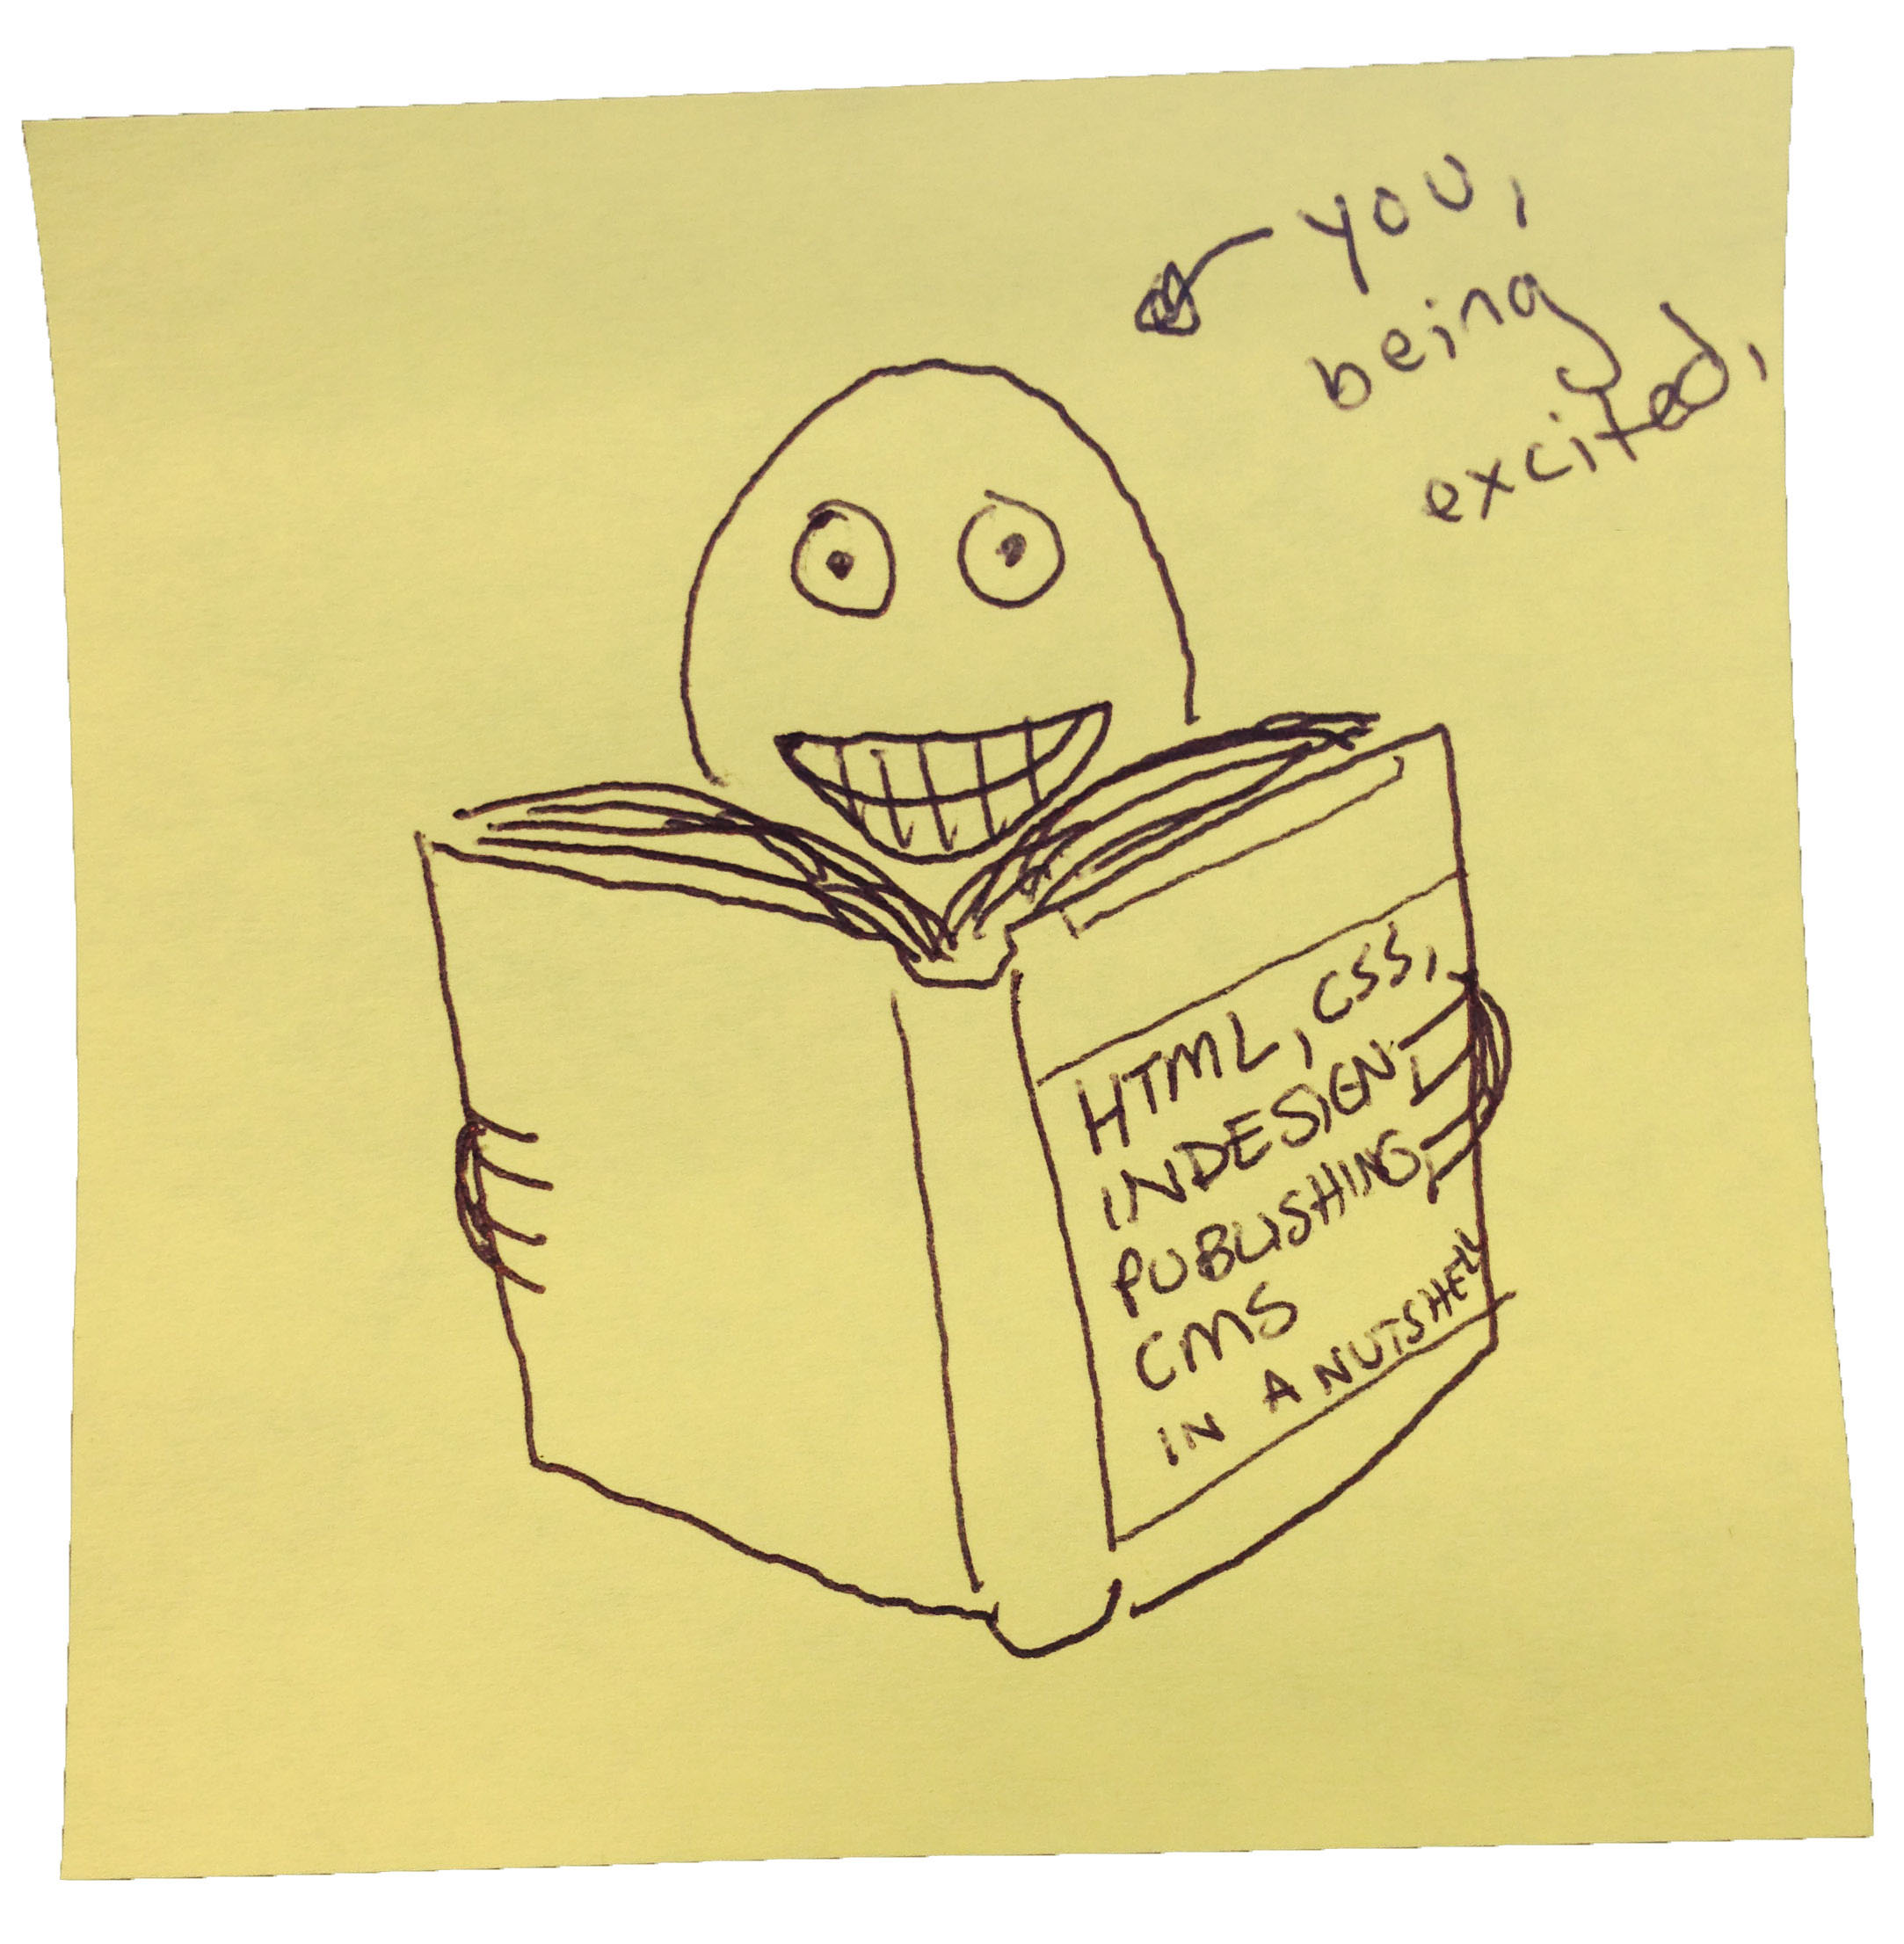 you,
being
excited,
HTML, CSS,
INDESIGN
PUBLISHING
CMS
IN A NUTSHELL